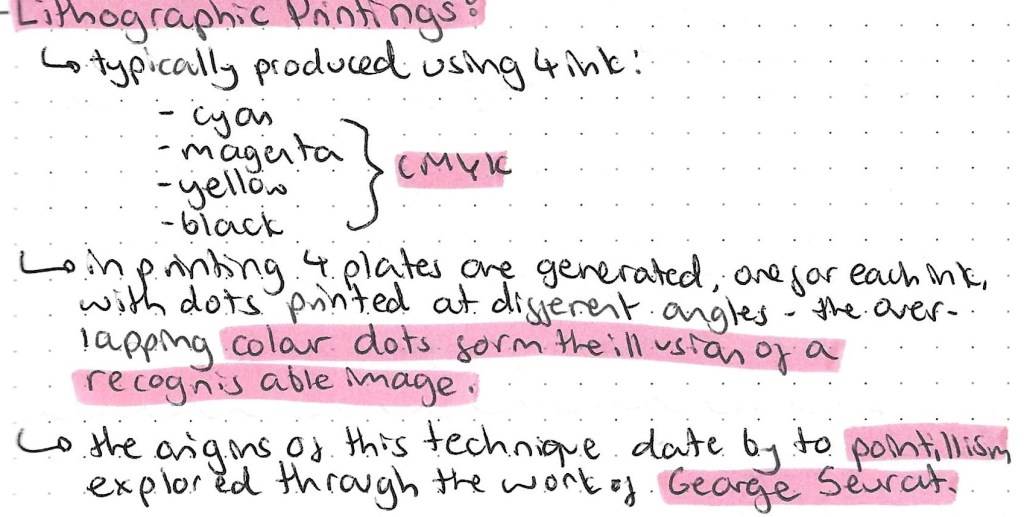 - Lithographic Printings:
↳ typically produced using 4 ink:
- cyan
- magenta
- yellow
- black
CMYK
↳ in printing 4 plates are generated, one for each ink,
with dots printed at different angles - the over-
lapping colour dots form the illusion of a
recognisable image.
↳ the origins of this technique date by to pointillism
explored through the work of George Seurat.